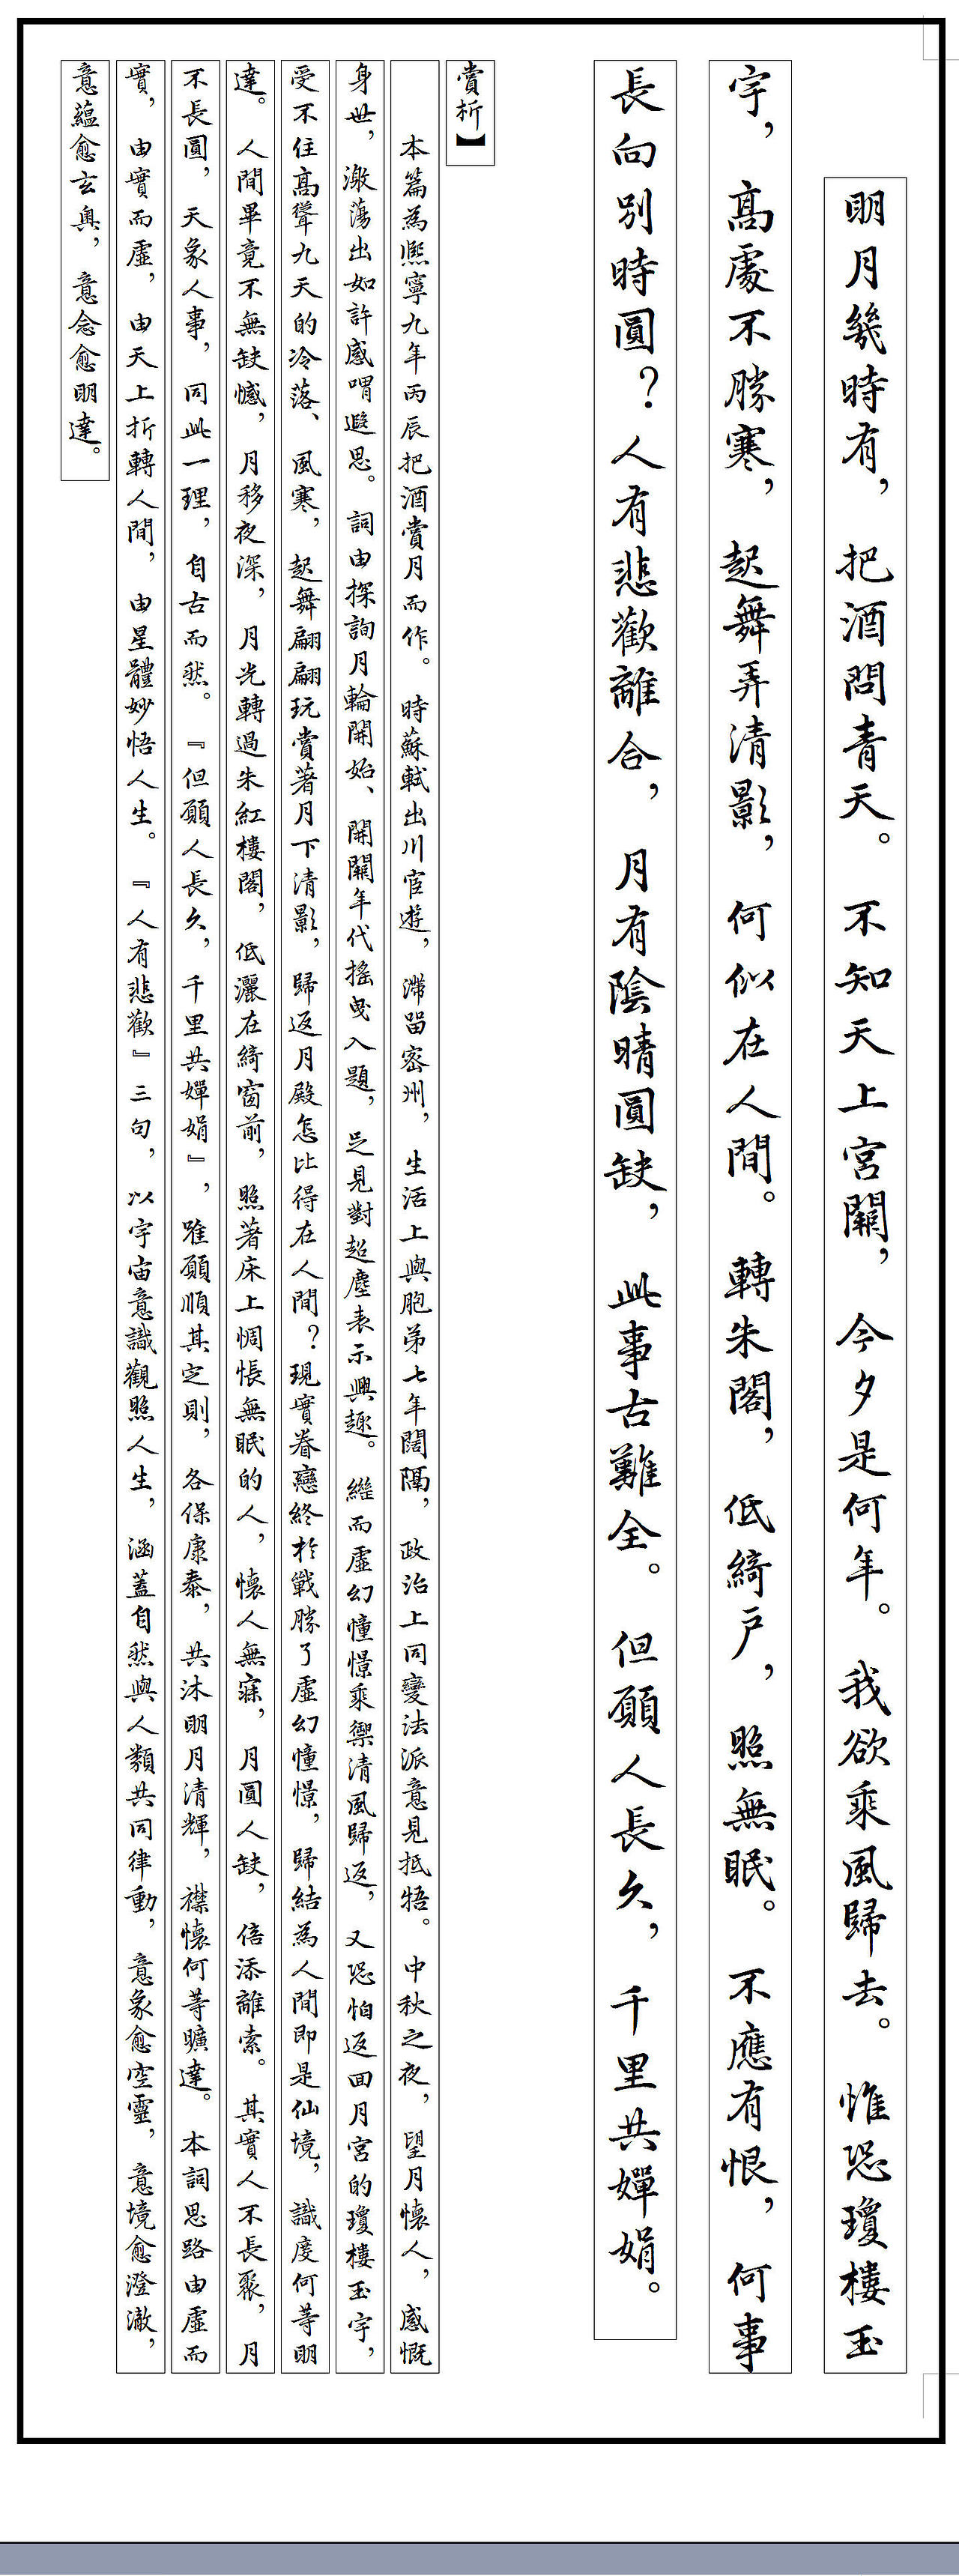 明月幾時有，把酒問青天。不知天上宮闕，今夕是何年。我欲乘風歸去。惟恐瓊樓玉
宇，高處不勝寒，起舞弄清影，何似在人間。轉朱閣，低綺戶，照無眠。不應有恨，何事
長向別時圓？人有悲歡離合，月有陰晴圓缺，此事古難全。但願人長久，千里共嬋娟。
賞析】
本篇為熙寧九年丙辰把酒賞月而作。時蘇軾出川宦遊，滯留密州，生活上與胞弟七年闊隔，政治上同變法派意見抵牾。中秋之夜，望月懷人，感慨
身世，激蕩出如許感喟遐思。詞由探詢月輪開始、開闢年代搖曳入題，足見對超塵表示興趣。繼而虛幻憧憬乘禦清風歸返，又恐怕返回月宮的瓊樓玉宇，
受不住高聳九天的冷落、風寒，起舞翩翩玩賞著月下清影，歸返月殿怎比得在人間？現實眷戀終於戰勝了虛幻憧憬，歸結為人間即是仙境，識度何等明
達。人間畢竟不無缺憾，月移夜深，月光轉過朱紅樓閣，低灑在綺窗前，照著床上惆悵無眠的人，懷人無寐，月圓人缺，倍添離索。其實人不長聚，月
不長圓，天象人事，同此一理，自古而然。『但願人長久，千里共嬋娟』，唯願順其定則，各保康泰，共沐明月清輝，襟懷何等曠達。本詞思路由虛而
實，由實而虛，由天上折轉人間，由星體妙悟人生。『人有悲歡』三句，以宇宙意識觀照人生，涵蓋自然與人類共同律動，意象愈空靈，意境愈澄澈，
意蘊愈玄奧，意念愈明達。